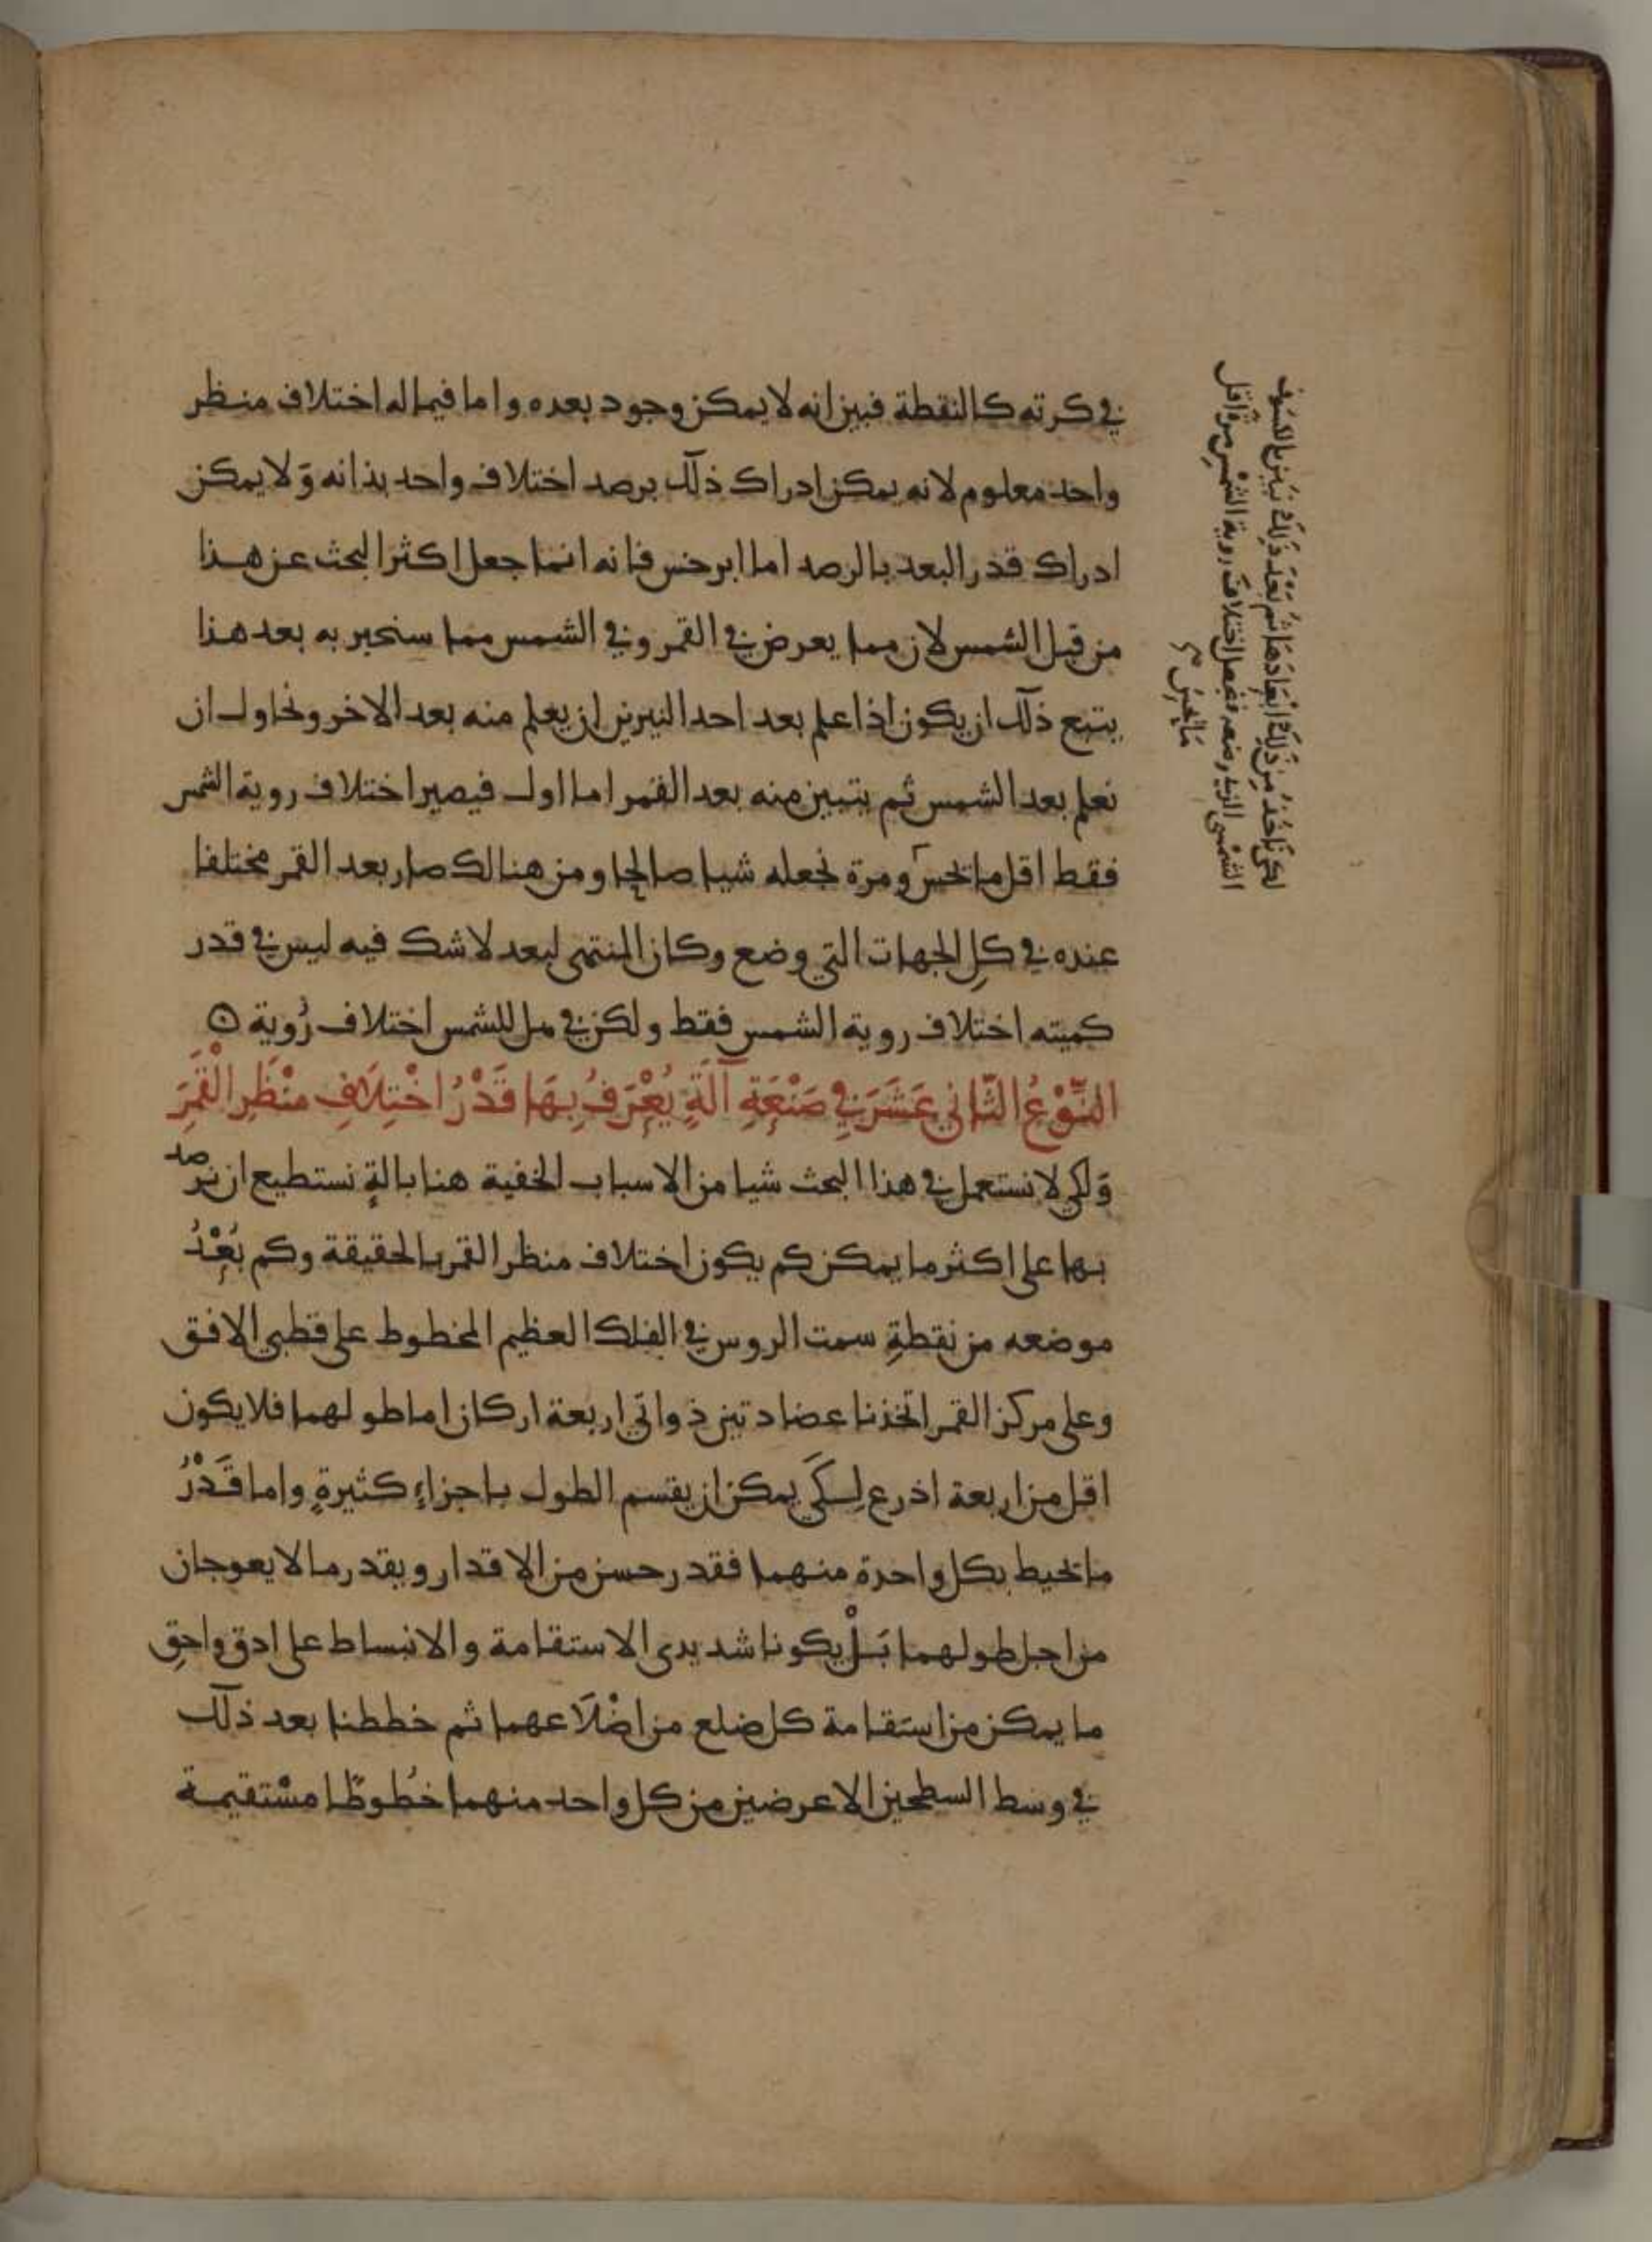 في كرته كالنقطة فبين انه لا يمكن وجود بعده واما فيما له اختلاف منظر
واحد معلوم لانه يمكن ادراك ذلك برصد اختلاف واحد بذاته وَلا يمكن
ادراك قدر البعد بالرصد اما ابرخس فانه انما جعل اكثر البحث عن هذا
من قبل الشمس لان مما يعرض في القمر وفي الشمس مما سنخبر به بعد هذا
يتبع ذلك ان يكون اذا علم بعد احد النيرين ان يعلم منه بعد الاخر ونحاول ان
نعلم بعد الشمس ثم يتبين منه بعد القمر اما اول فيصير اختلاف روية الشمس
فقط اقل ما تحس ومرة نجعله شيا صالحا ومن هنالك صار بعد القمر مختلفا
عنده في كل الجهات التي وضع وكان المنتهى لبعد لا شك فيه ليس في قدر
كميته اختلاف روية الشمس فقط ولكن في هل للشمس اختلاف رُوية
النَّوْعُ الثَّاني عَشَرَ فِي صَنْعَةِ آلَةٍ يُعْرَفُ بِهَا قَدْرُ اخْتِلَافِ مَنْظَرِ الْقَمَرِ
وَلكي لا نستعمل في هذا البحث شيا من الاسباب الخفية هنا بالةٍ نستطيع ان نرصد
بها على اكثر ما يمكن كم يكون اختلاف منظر القمر بالحقيقة وكم بُعْدُ
موضعه من نقطةِ سمت الروس في الفلك العظيم المخطوط على قطبي الافق
وعلى مركز القمر اتخذنا عضادتين ذواتي اربعة اركان اما طولهما فلا يكون
اقل من اربعة اذرع لِكَي يمكن ان يقسم الطول باجزاءٍ كثيرةٍ واما قَدْرُ
ما تحيط بكل واحدة منهما فقدر حسن من الاقدار وبقدر ما لا يعوجان
من اجل طولهما بَلْ يكونا شديدى الاستقامة والانبساط على ادق واحق
ما يمكن من استقامة كل ضلع من اضْلَاعهما ثم خططنا بعد ذلك
في وسط السطحين الاعرضين من كل واحد منهما خُطوطا مسْتقيمة
لكي ناخُذ مِن ذَلِكَ ابْعادَهَا ثُم بَعْدَ ذَلِكَ نَبَين بالكسَوف
الشمسى الذى رصد فيجعل اختلافَ روية الشمْسِ مرة اقل
مَا يحس